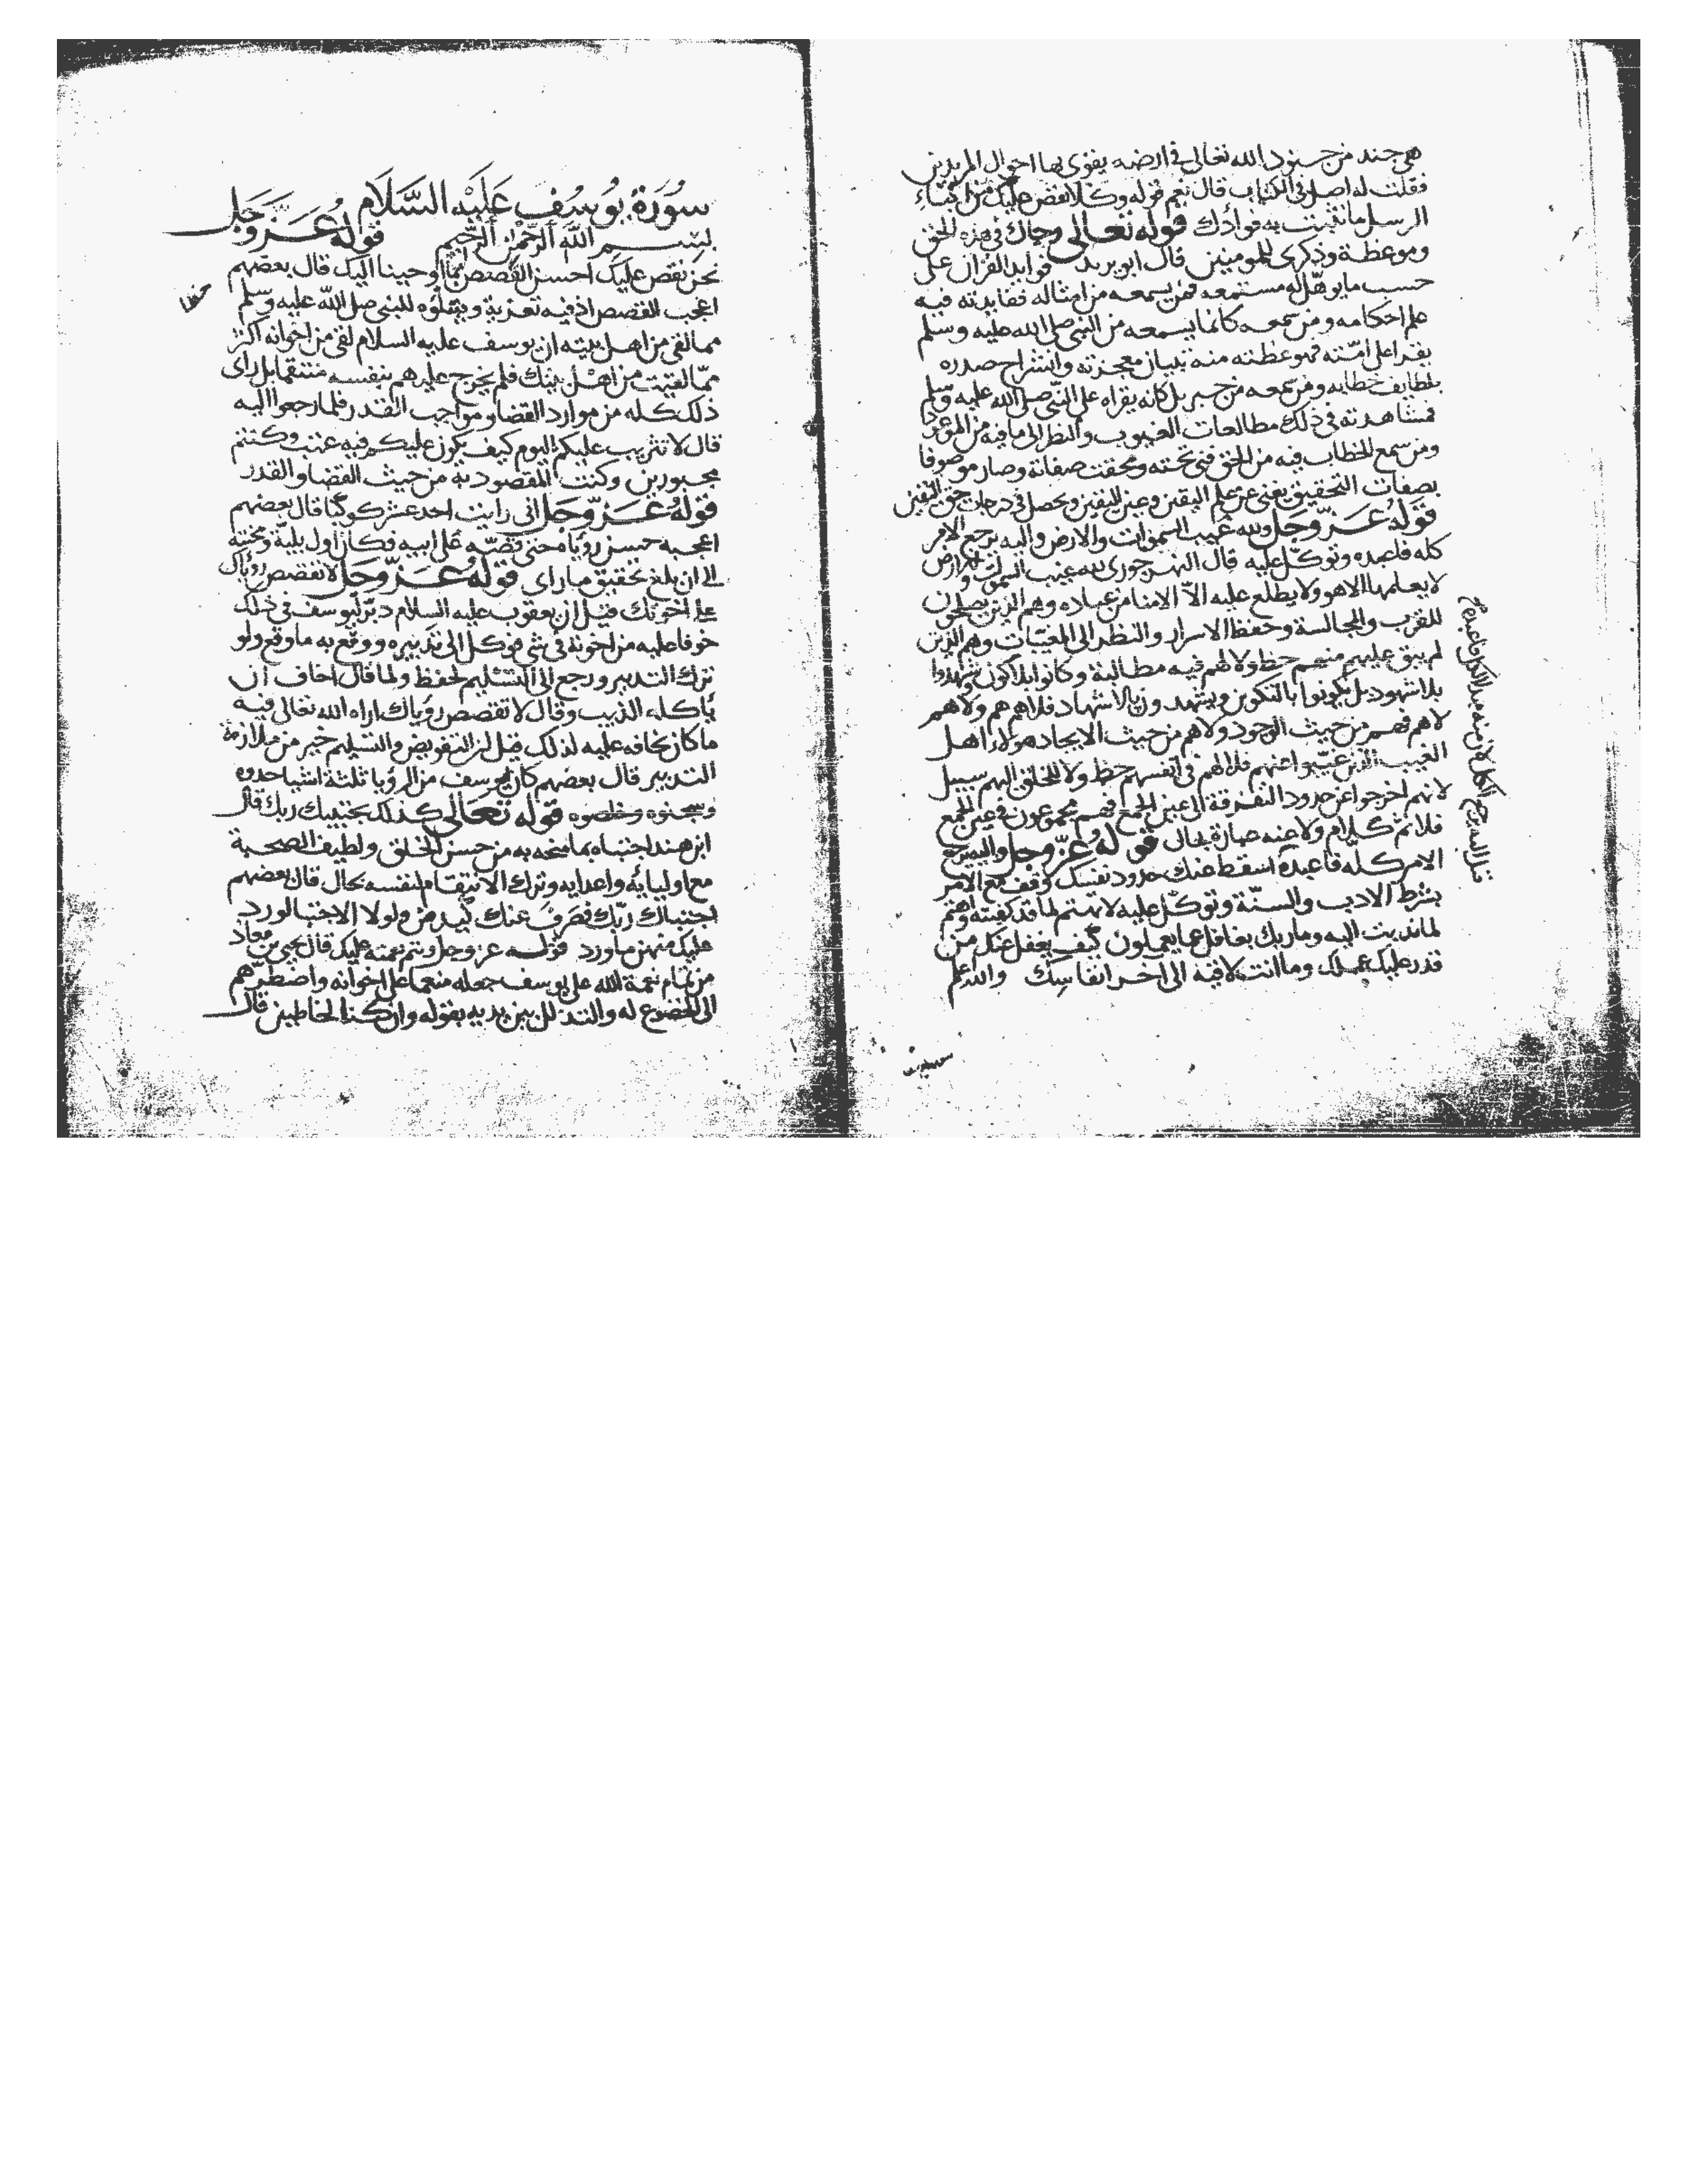 هي جند من جنود الله تعالى في ارضه يقوى بها احوال المريدين
فقلت له اصل في الكتاب قال نعم قوله وكلا نقص عليك من انباء
الرسل ما نثبت به فوادك قوله تعالى وجاك في هذه الحق
وموعظة وذكرى للمومنين قال ابو يزيد فوايد القران على
حسب ما يوهل له مستمعه فمن يسمعه من امثاله ففايدته فيه
علم احكامه ومن سمعه كانما يسمعه من النبي صلى الله عليه وسلم
يقرا على امته فموعظته منه تبيان معجزته وانشراح صدره
بلطايف خطابه ومن سمعه من جبريل كانه يقراه على النبي صلى الله عليه وسلم
فمشاهدته في ذلك مطالعات الغيوب والنظر الى ما فيه من الموعود
ومن سمع الخطاب فيه من الحق فنى تحته ومحقت صفاته وصار موصوفا
بصفات التحقيق يعني عن علم اليقين وعين اليقين وحصل في درجات حق اليقين
قوله عز وجل ولله غيب السموات والارض واليه يرجع الامر
كله فاعبده وتوكل عليه قال النهرجوري لله غيب السموات والارض
لا يعلمها الا هو ولا يطلع عليه الا الامنا من عباده وهم الذين يصلحون
للقرب والمجالسة وحفظ الاسرار والنظر الى المغيبات وهم الذين
لم يبق عليهم منهم حظ ولا لهم فيه مطالبة وكانوا بلا كون وشهدوا
بلا شهود بل يكونوا بالتكوين ويشهدون بالاشهاد فلاهم هم ولاهم
لاهم فهم من حيث الوجود ولاهم من حيث الايجاد هولاء اهل
الغيب الذين غيبوا عنهم فلا لهم في انفسهم حظ ولا للخلق اليهم سبيل
لانهم اخرجوا عن حدود التفرقة الى عين الجمع فهم مجموعون في عين الجمع
فلا ثم كلام ولا عنه عبارة بحال قوله عز وجل واليه يرجع
الامر كله فاعبده اسقط عنك حدود نفسك وقف مع الامر
بشرط الادب والسنة وتوكل عليه لا تهتم لما قد كفيته واهتم
لما ندبت اليه وما ربك بغافل عما يعملون كيف يغفل عنك من
قدر عليك عملك وما انت لاقيه الى اخر انفاسك والله اعلم
سورة يوسف عليه السلام
بسم الله الرحمن الرحيم قوله عز وجل
نحن نقص عليك احسن القصص بما اوحينا اليك قال بعضهم
اعجب القصص اذ فيه تعزية وتسلوه للنبي صلى الله عليه وسلم
مما لقي من اهل بيته ان يوسف عليه السلام لقي من اخوانه اكثر
مما لقيت من اهل بيتك فلم يخرج عليهم بنفسه منتقما بل راى
ذلك كله من موارد القضا ومواجب القدر فلما رجعوا اليه
قال لا تثريب عليكم اليوم كيف يكون عليكم فيه عتب وكنتم
مجبورين وكنت المقصود به من حيث القضا والقدر
قوله عز وجل اني رايت احد عشر كوكبا قال بعضهم
اعجبه حسن رؤياه حتى قصه على ابيه فكان اول بلية ومحنته
الى ان بلغ تحقيق ما راى قوله عز وجل لا تقصص رؤياك
على اخوتك قيل ان يعقوب عليه السلام دبر ليوسف في ذلك
خوفا عليه من اخوته في شي فوكل الى تدبيره ووقع به ما وقع ولو
ترك التدبير ورجع الى التسليم لحفظ ولما قال اخاف ان
ياكله الذيب وقال لا تقصص رؤياك اراه الله تعالى فيه
ما كان يخافه عليه لذلك قيل ان التفويض والتسليم خير من ملازمة
التدبير قال بعضهم كان ليوسف من الرؤيا ثلثة اشيا حدوه
وسجنوه وخلصوه قوله تعالى كذلك يجتبيك ربك قال
ابن هند اجتباه بما منحه به من حسن الخلق ولطيف الصحبة
مع اوليايه واعدايه وترك الانتقام لنفسه بحال قال بعضهم
اجتباك ربك فصرف عنك كيدهن ولولا الاجتبا لورد
عليك منهن ما ورد قوله عز وجل ويتم نعمته عليك قال يحيى بن معاذ
من تمام نعمة الله على يوسف جعله منعما على اخوانه واضطرهم
الى الخضوع له والتذلل بين يديه بقوله وان كنا لخاطين قال